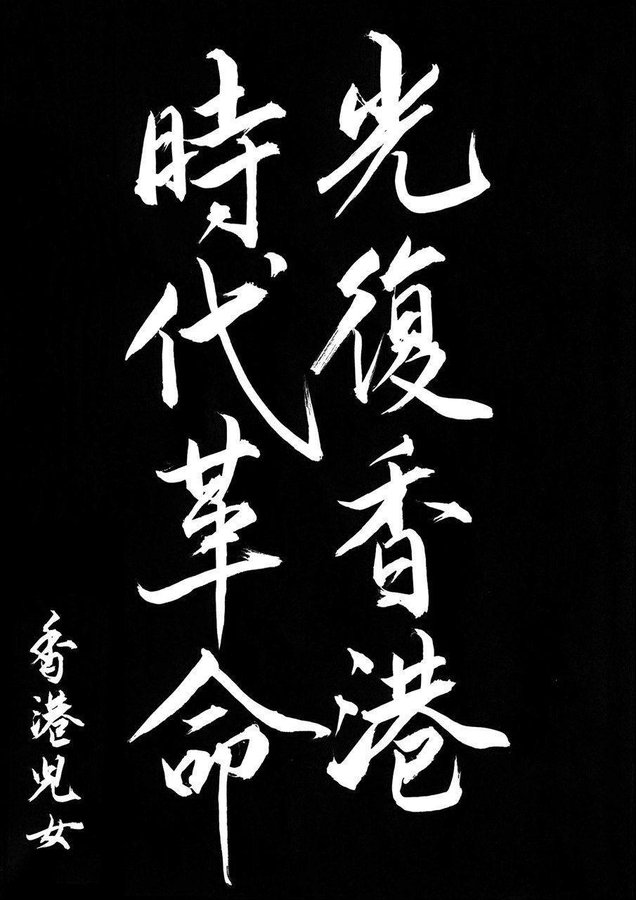 光復香港
時代革命
香港兒女